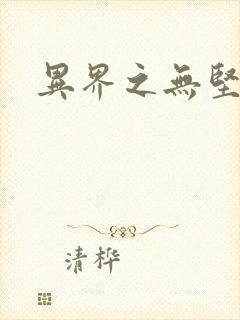 異界之無堅
清桦